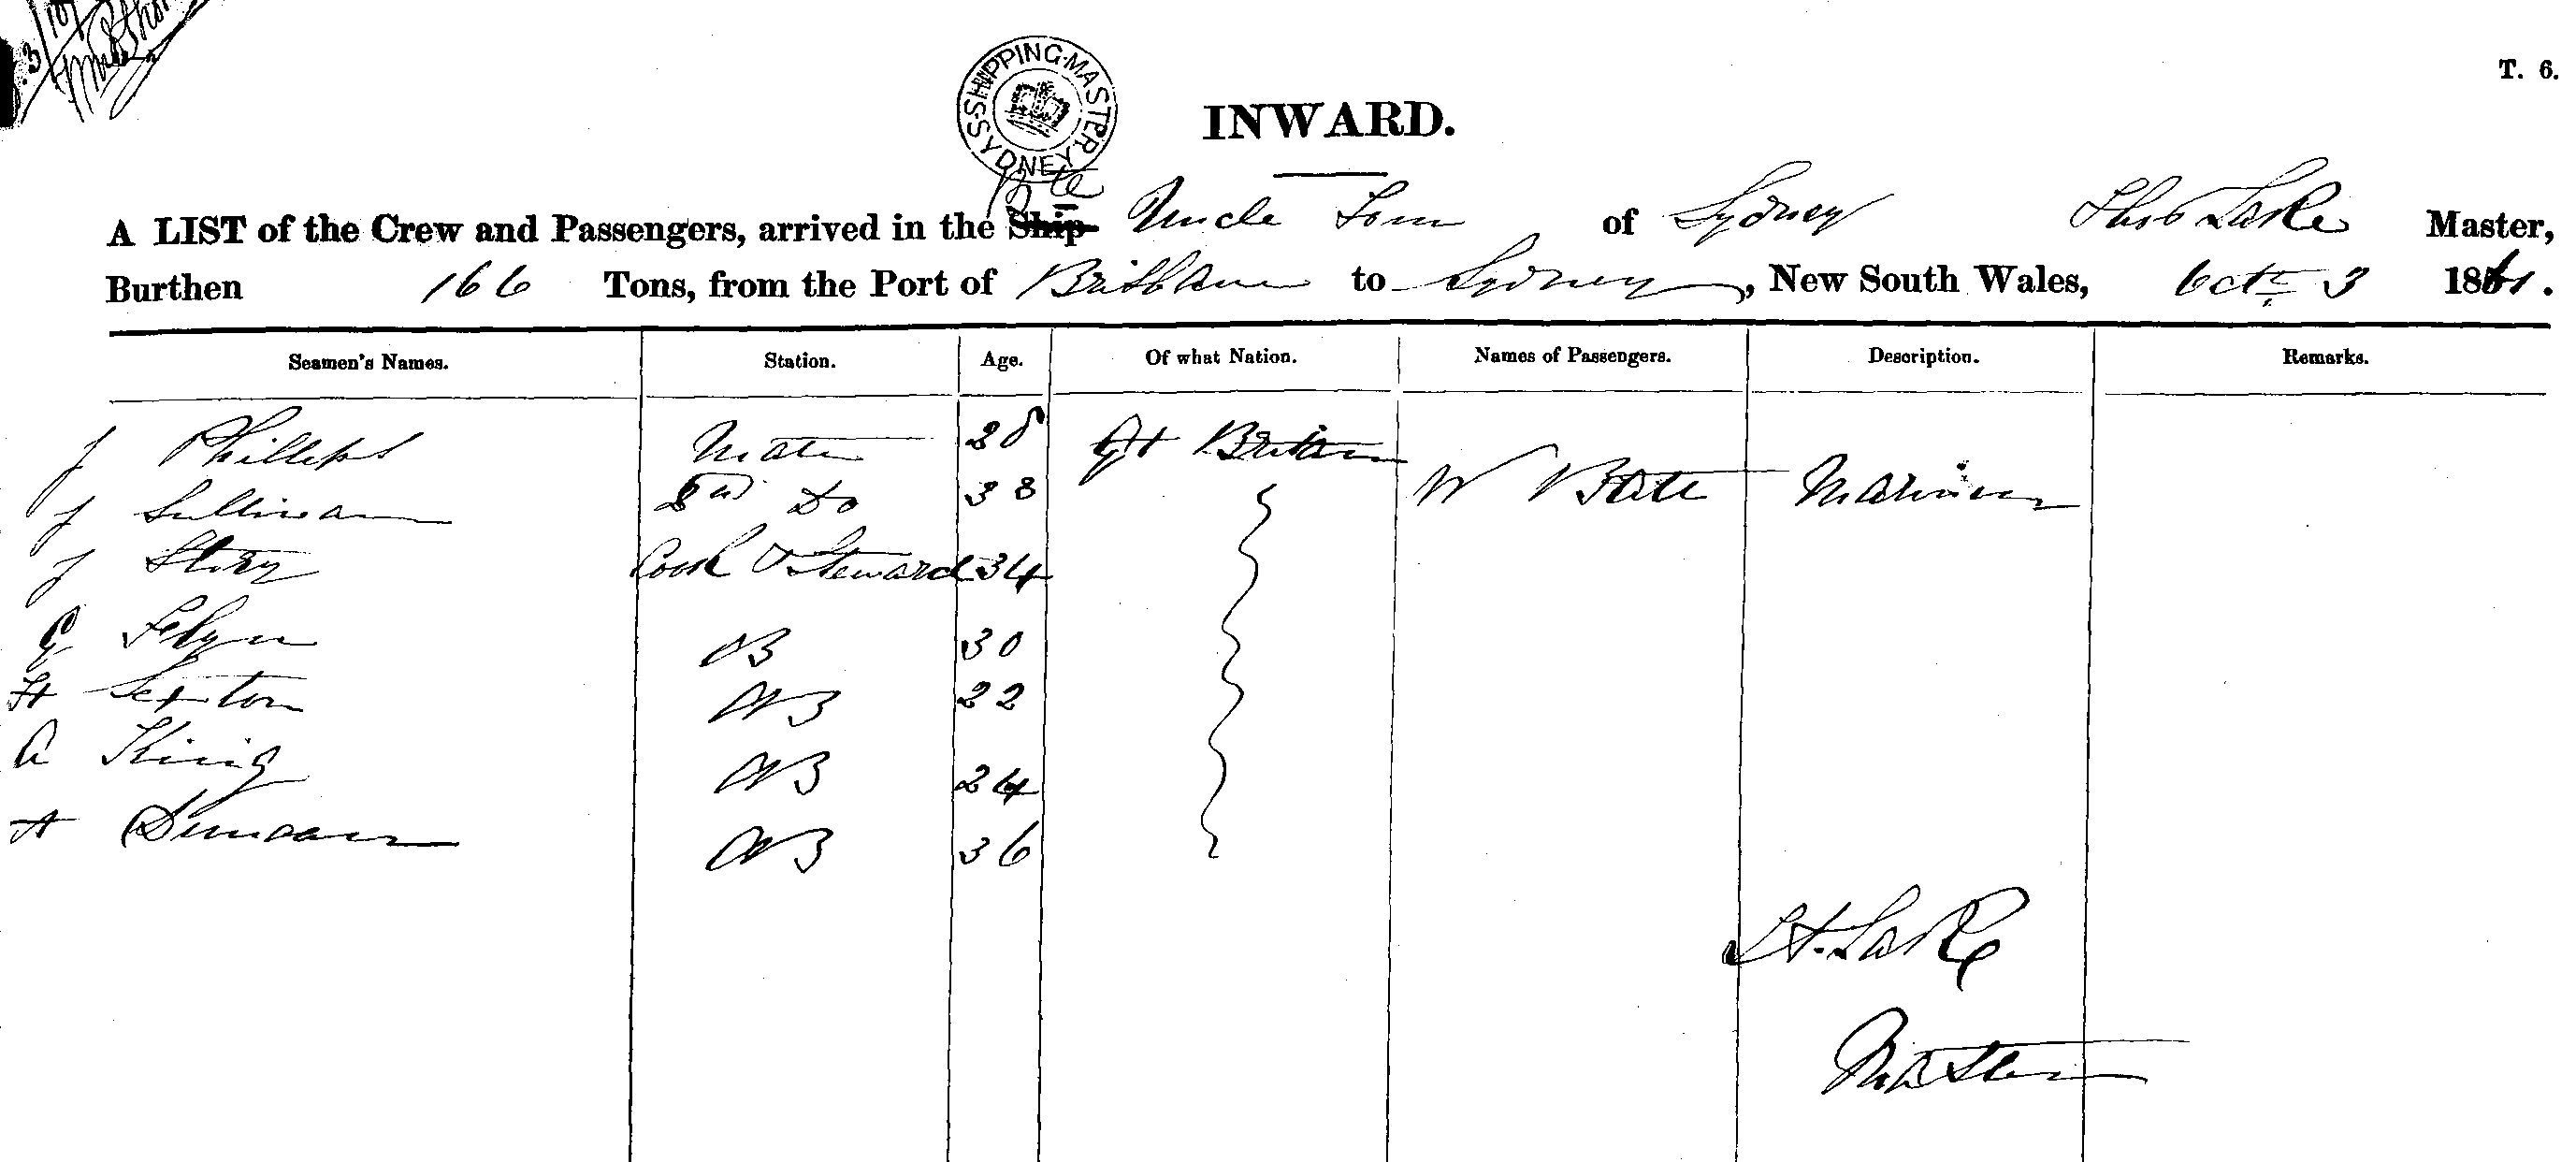 SHIPPING·MASTER·S·SYDNEY·
T. 6.
INWARD.
A LIST of the Crew and Passengers, arrived in the Ship Bte Uncle Tom of Sydney Thos Lake Master,
Burthen 166 Tons, from the Port of Brisbane to Sydney, New South Wales, Octr 3 1861.
Seamen's Names. Station. Age. Of what Nation. Names of Passengers. Description. Remarks.
J Phillips Mate 28 Gt Britain
J Sullivan 2nd Do 38 W Bate Mariner
J Story Cook & Steward 34
G Flynn AB 30
H Sexton AB 22
A King AB 24
A Duncan AB 36
T H. Lake
Master